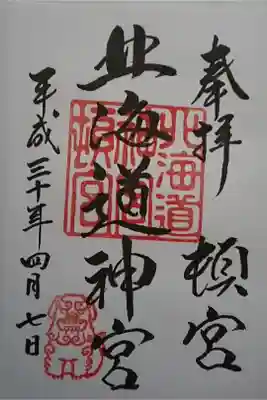 奉拝 頓宮
北海道神宮
平成三十年四月七日
北海道
神宮
頓宮